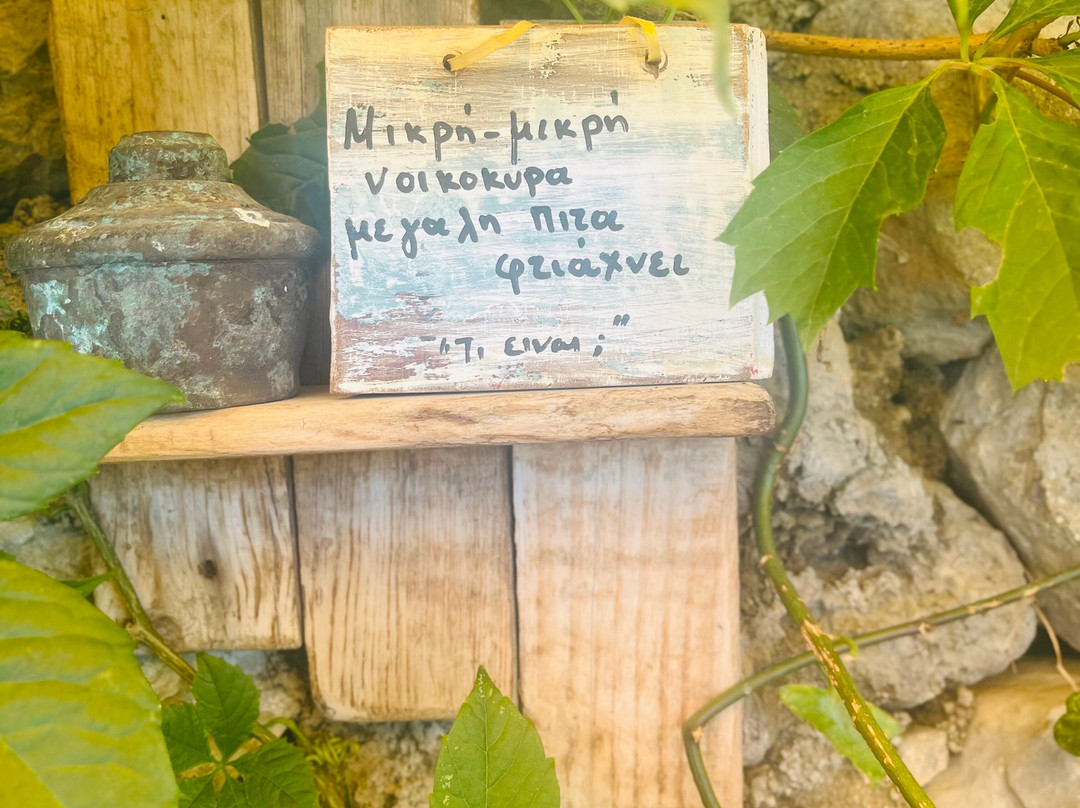 Μικρή-μικρή
νοικοκυρα
μεγαλη πιτα
φτιάχνει
"Τι ειναι;"